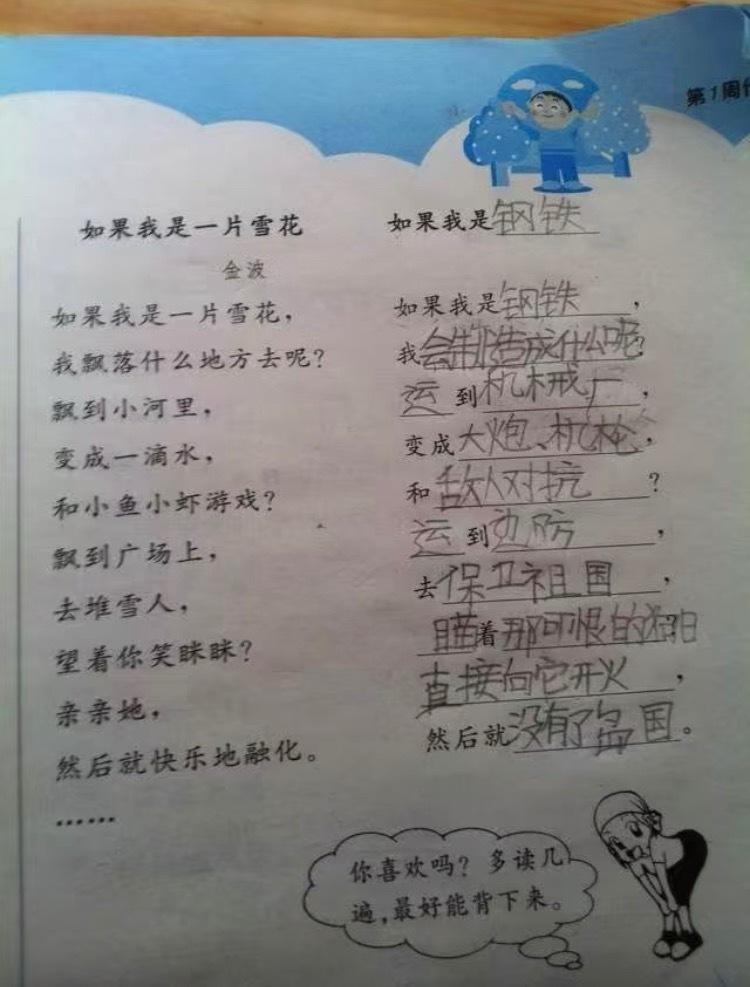 第1周
如果我是一片雪花
金波
如果我是一片雪花,
我飘落什么地方去呢?
飘到小河里,
变成一滴水,
和小鱼小虾游戏?
飘到广场上,
去堆雪人,
望着你笑眯眯?
亲亲她,
然后就快乐地融化。
……
如果我是钢铁
如果我是钢铁,
我会制造成什么呢?
运到机械厂,
变成大炮、机枪,
和敌人对抗?
运到边防,
去保卫祖国,
瞄着那可恨的
直接向它开火,
然后就没有了岛国。
你喜欢吗?多读几
遍,最好能背下来。